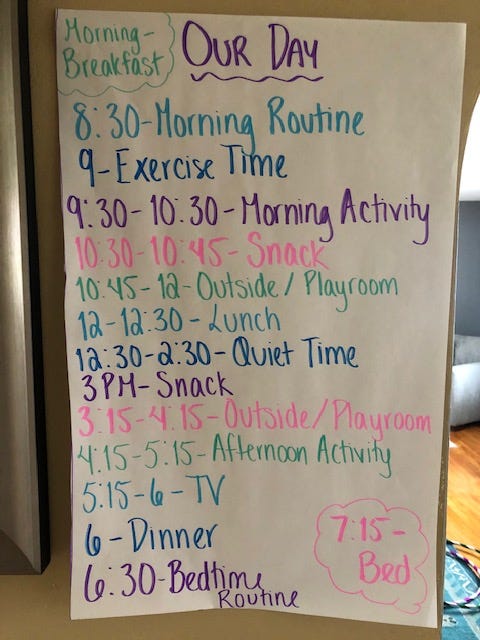 Morning-
Breakfast
OUR DAY
8:30-Morning Routine
9-Exercise Time
9:30-10:30-Morning Activity
10:30-10:45-Snack
10:45-12-Outside/Playroom
12-12:30-Lunch
12:30-2:30-Quiet Time
3PM-Snack
3:15-4:15-Outside/Playroom
4:15-5:15-Afternoon Activity
5:15-6-TV
6-Dinner
6:30-Bedtime
Routine
7:15-
Bed